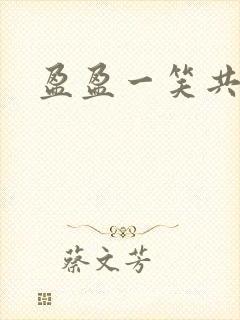 盈盈一笑共
蔡文芳